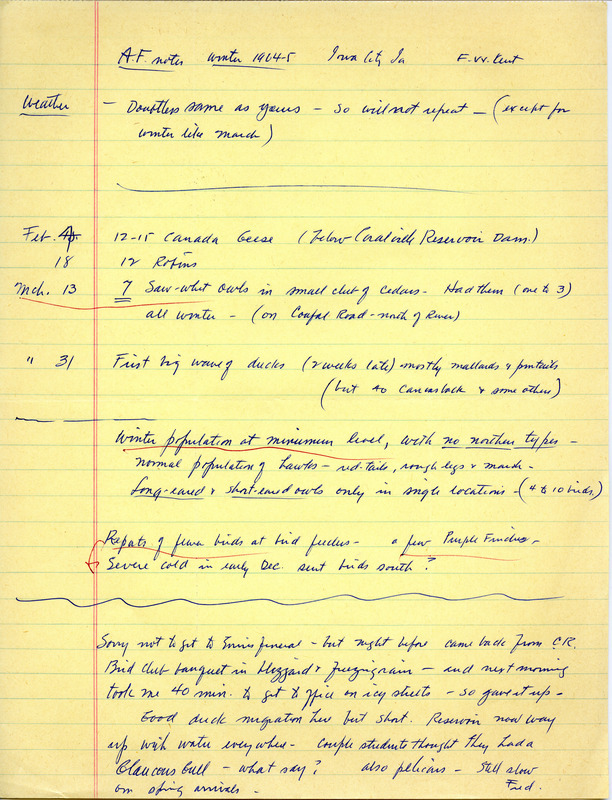 A.F. notes Winter 1964-5 Iowa City Ia F.W. Kent
Weather — Doubtless same as yours — so will not repeat — (except for
winter like March)
Feb. 12-15 Canada Geese (below Coralville Reservoir Dam.)
18 12 Robins
Mch. 13 7 Saw-whet owls in small club of cedars - Had them (one to 3)
all winter - (on Coupal Road - north of River)
" 31 First big wave of ducks (2 weeks late) mostly mallards & pintails
(but 40 canvasback & some others)
Winter population at minimum level, with no northern types -
normal population of hawks - red-tails, rough legs & marsh -
Long-eared & short-eared owls only in single locations - (4 to 10 birds)
Reports of fewer birds at bird feeders - a few Purple Finches -
Severe cold in early Dec. sent birds south?
Sorry not to get to funeral - but night before came back from C.R.
Bird club banquet in blizzard & freezing rain - and next morning
took me 40 min. to get to office on icy streets - so gave it up -
Good duck migration here but short. Reservoir now way
up with water everywhere - couple students thought they had a
Glaucous Gull - what say? also pelicans - still slow
on spring arrivals -
Fred.